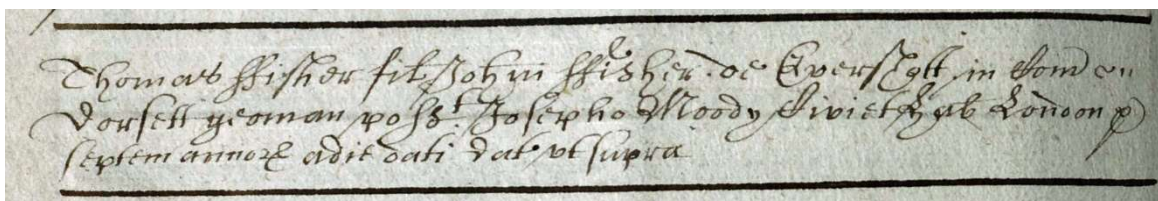 Thomas ffisher fil Johni ffisher de Evershott in Com
Dorsett yeoman pos st Josepho Moody Civi et London p
septem annor a die dati dat ut supra